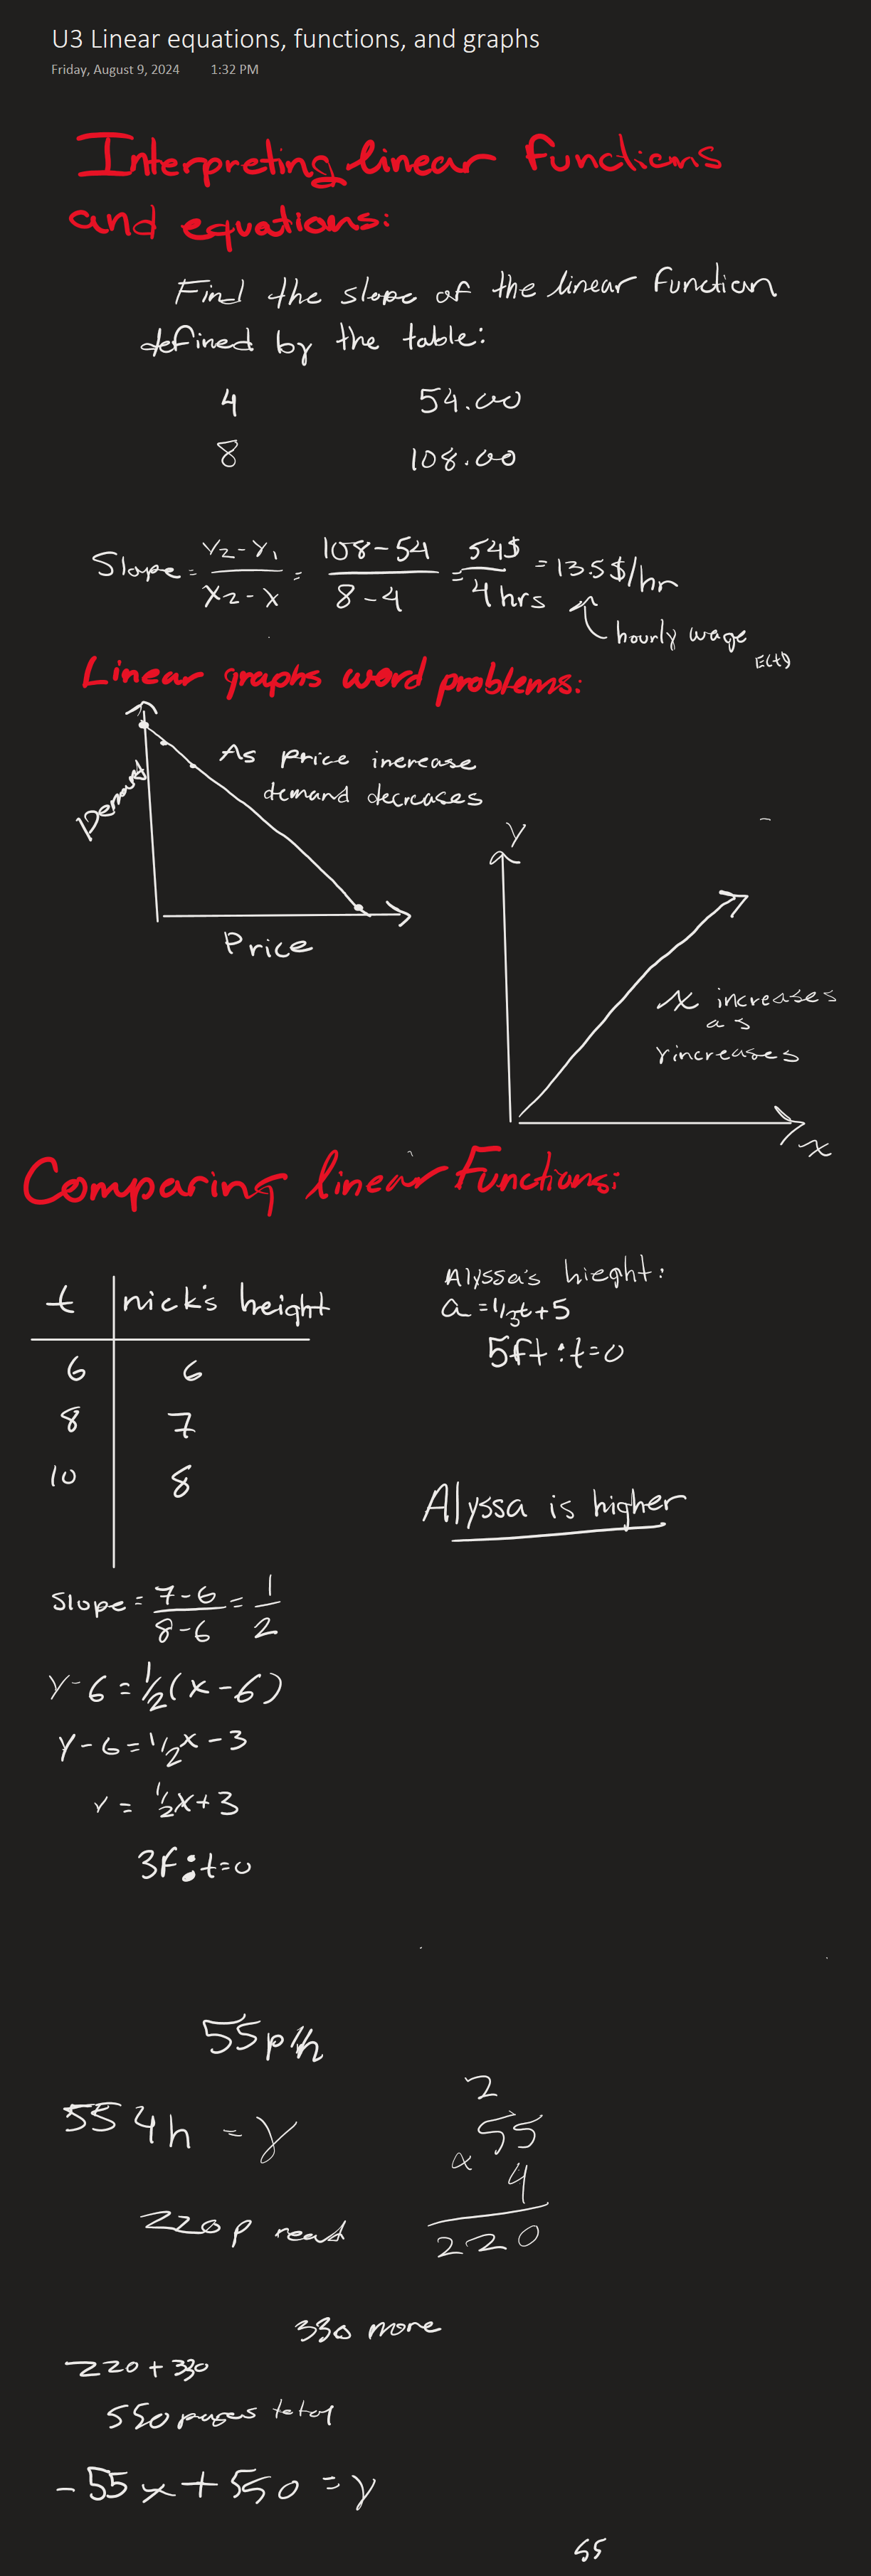 U3 Linear equations, functions, and graphs
Friday, August 9, 2024 1:32 PM
Interpreting linear functions
and equations:
Find the slope of the linear function
defined by the table:
4 54.00
8 108.00
Slope = (y2-y1)/(x2-x) = (108-54)/(8-4) = 54$/4hrs = 13.5$/hr
hourly wage
E(t)
Linear graphs word problems:
Demand
As price increase
demand decreases
Price
y
x increases
as
y increases
x
Comparing linear Functions:
t nick's height
6 6
8 7
10 8
Alyssa's hieght:
a = 1/3t+5
5ft:t=0
Alyssa is higher
Slope = (7-6)/(8-6) = 1/2
y-6 = 1/2(x-6)
y-6 = 1/2x-3
y = 1/2x+3
3f:t=0
55p/h
55 4h = y
220p read
2
55
x 4
220
330 more
220 + 330
550 pages total
-55x+550 = y
55